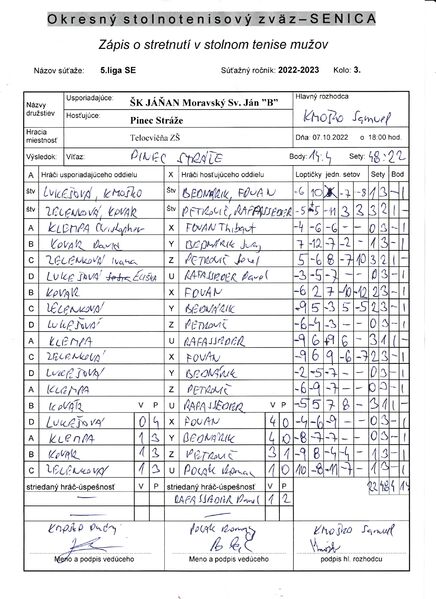 Okresný stolnotenisový zväz – SENICA
Zápis o stretnutí v stolnom tenise mužov
Názov súťaže: 5.liga SE Súťažný ročník: 2022-2023 Kolo: 3.
Názvy družstiev
Usporiadajúce: ŠK JÁŇAN Moravský Sv. Ján "B"
Hosťujúce: Pinec Stráže
Hlavný rozhodca
KMOŠKO Samuel
Hracia miestnosť Telocvičňa ZŠ Dňa: 07.10.2022 o 18:00 hod.
Výsledok: Víťaz: PINEC STRÁŽE Body: 14:4 Sety: 48:22
A Hráči usporiadajúceho oddielu X Hráči hosťujúceho oddielu Loptičky jedn. setov Sety Bod
štv LUKEŠOVÁ, KMOŠKO Štv BEDNÁRIK, FOVAN
štv ZELENKOVÁ, KOVÁR Štv PETROVIČ, RAFASSEDER
A KLEMPA Christopher X FOVAN Thibaut -4 -6 -6 - - 0 3 - 1
B KOVÁR David Y BEDNÁRIK Juraj 7 -12 -7 -2 - 1 3 - 1
C ZELENKOVÁ Ivana Z PETROVIČ 5 -6 8 -7 10 3 2 1 -
D LUKEŠOVÁ Eliška U RAFASSEDER Pavol -3 -5 -7 - - 0 3 - 1
B KOVÁR X FOVAN -6 2 7 -10 -12 2 3 - 1
C ZELENKOVÁ Y BEDNÁRIK -9 5 3 5 -5 2 3 - 1
D LUKEŠOVÁ Z PETROVIČ -6 -4 -3 - - 0 3 - 1
A KLEMPA U RAFASSEDER -9 6 9 6 - 3 1 1 -
C ZELENKOVÁ X FOVAN -9 6 9 -6 -7 2 3 - 1
D LUKEŠOVÁ Y BEDNÁRIK -2 -5 -7 - - 0 3 - 1
A KLEMPA Z PETROVIČ -6 -9 -7 - - 0 3 - 1
B KOVÁR V P U RAFASSEDER V P -5 5 7 8 - 3 1 1 -
D LUKEŠOVÁ 0 4 X FOVAN 4 0 -4 -6 -9 - - 0 3 - 1
A KLEMPA 1 3 Y BEDNÁRIK 4 0 -8 -7 -7 - - 0 3 - 1
B KOVÁR 1 3 Z PETROVIČ 3 1 -9 8 -4 -4 - 1 3 - 1
C ZELENKOVÁ 1 3 U POLÁK Roman 1 0 -10 -8 11 -7 - 1 3 - 1
striedaný hráč-úspešnosť V P striedaný hráč-úspešnosť V P 22 48 4 14
RAFASSEDER Pavol 1 2
POLÁK Roman
KMOŠKO Samuel
Meno a podpis vedúceho Meno a podpis vedúceho podpis hl. rozhodcu